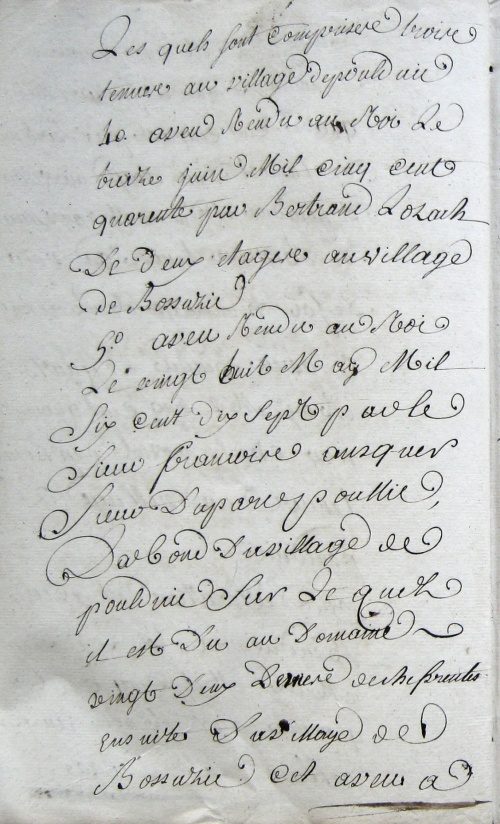 Les quels sont comprises trois
tenues au village de pouldu
4o aveu Rendu au Roi Le
treize juin Mil cinq cent
quarente par Bertrand Lozach
De Deux etages au village
de Bossuzie
5o aveu Rendu au Roi
Le vingt huit May Mil
Six cent dix Sept par le
Sieur francoise ausquer
Sieur Duparc poullic,
Dabond Du village de
Sur Le quel
il est Du au Domaine
vingt Deux Deniers de chefrentes
Ensuite Du village de
Bossuzie cet aveu a